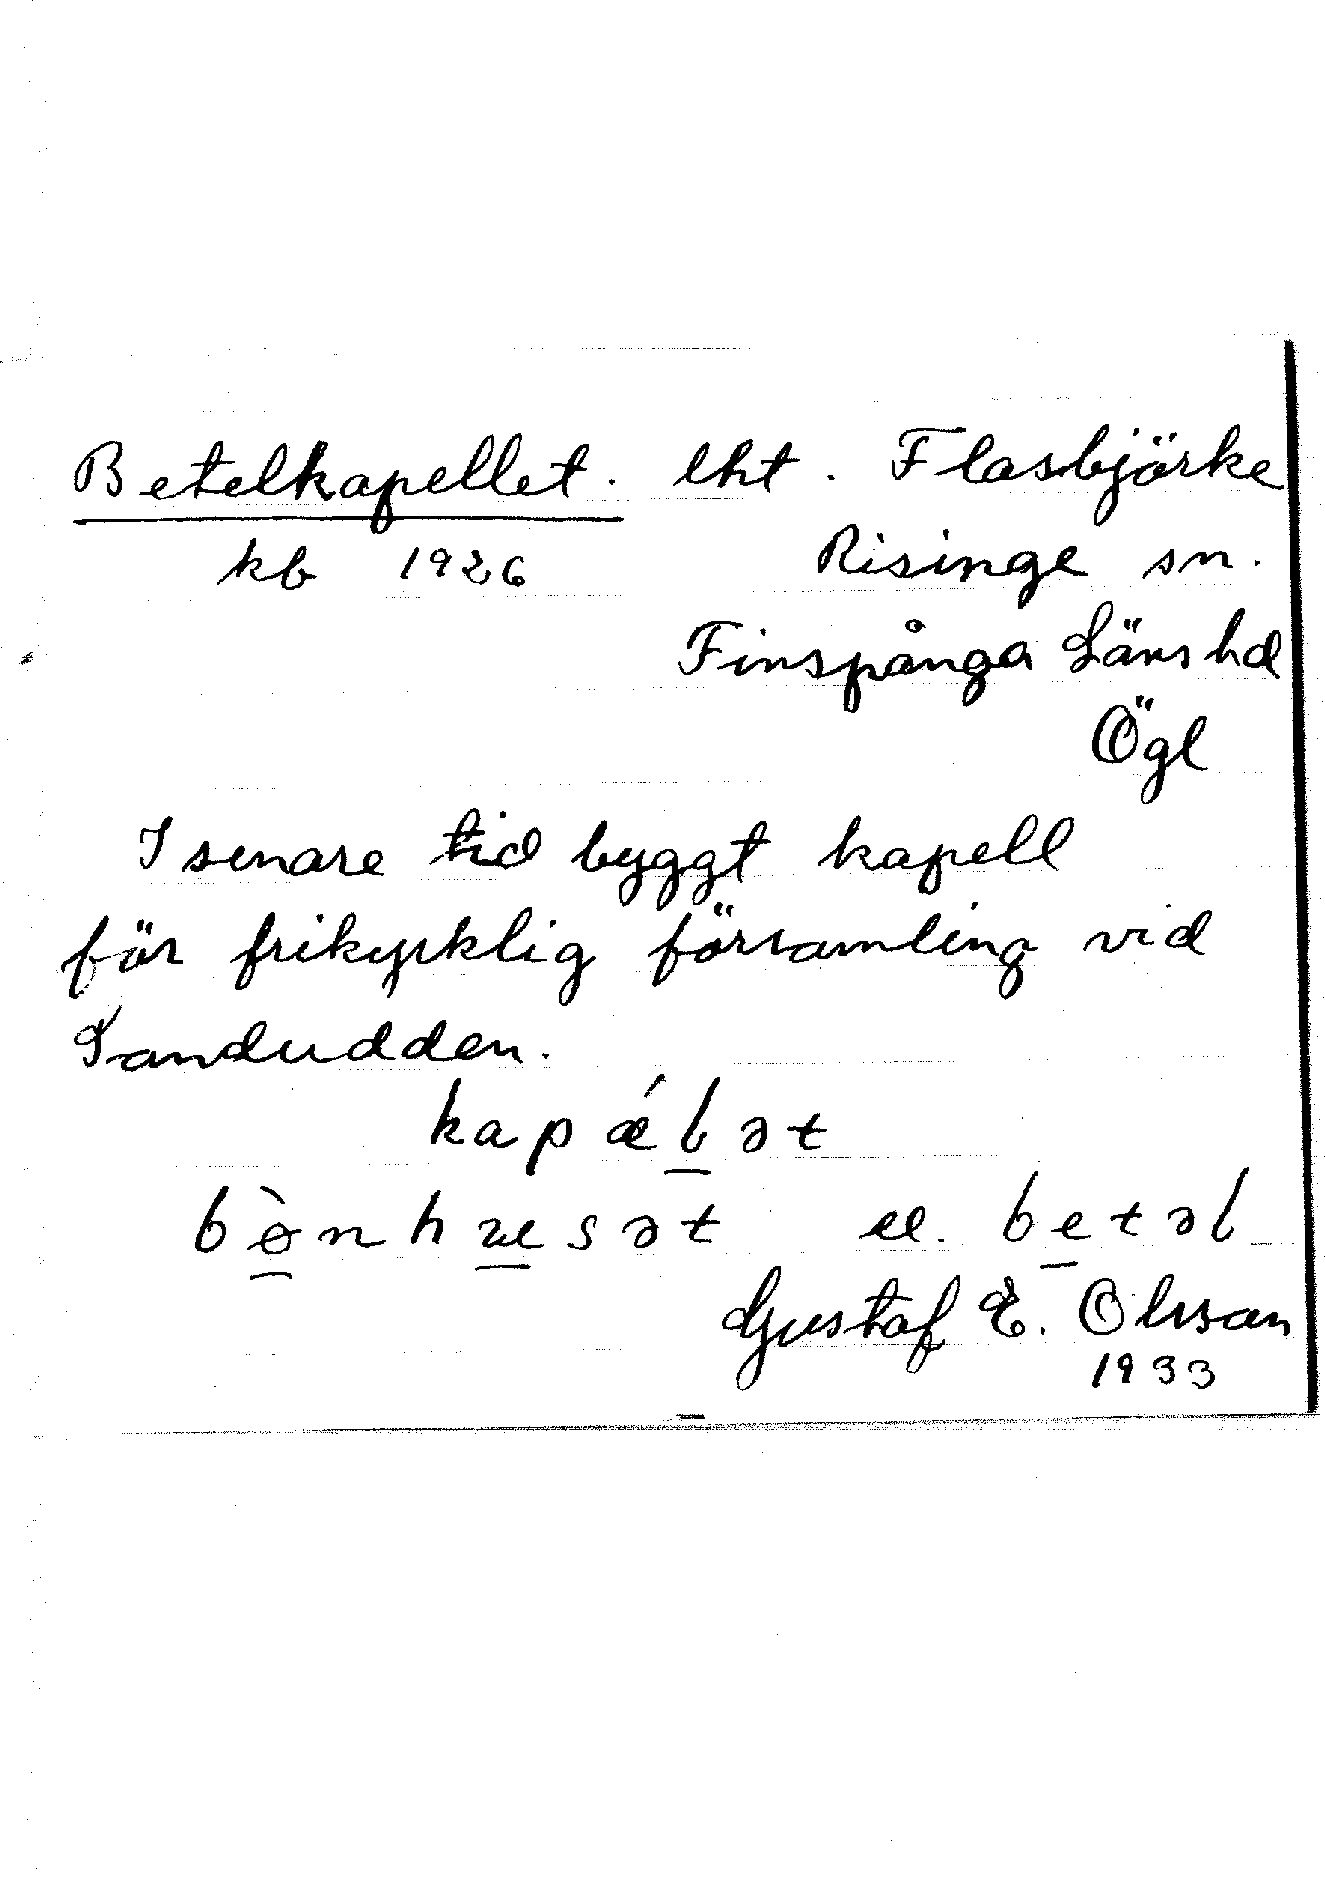 Betelkapellet. lht. Flasbjörke
kb 1926 Risinge sn.
Finspånga Läns hd
Ögl
I senare tid byggt kapell
för frikyrklig församling vid
Sandudden.
kapǽlət
bønhʉsət el. betəl
Gustaf E. Olsson
1933